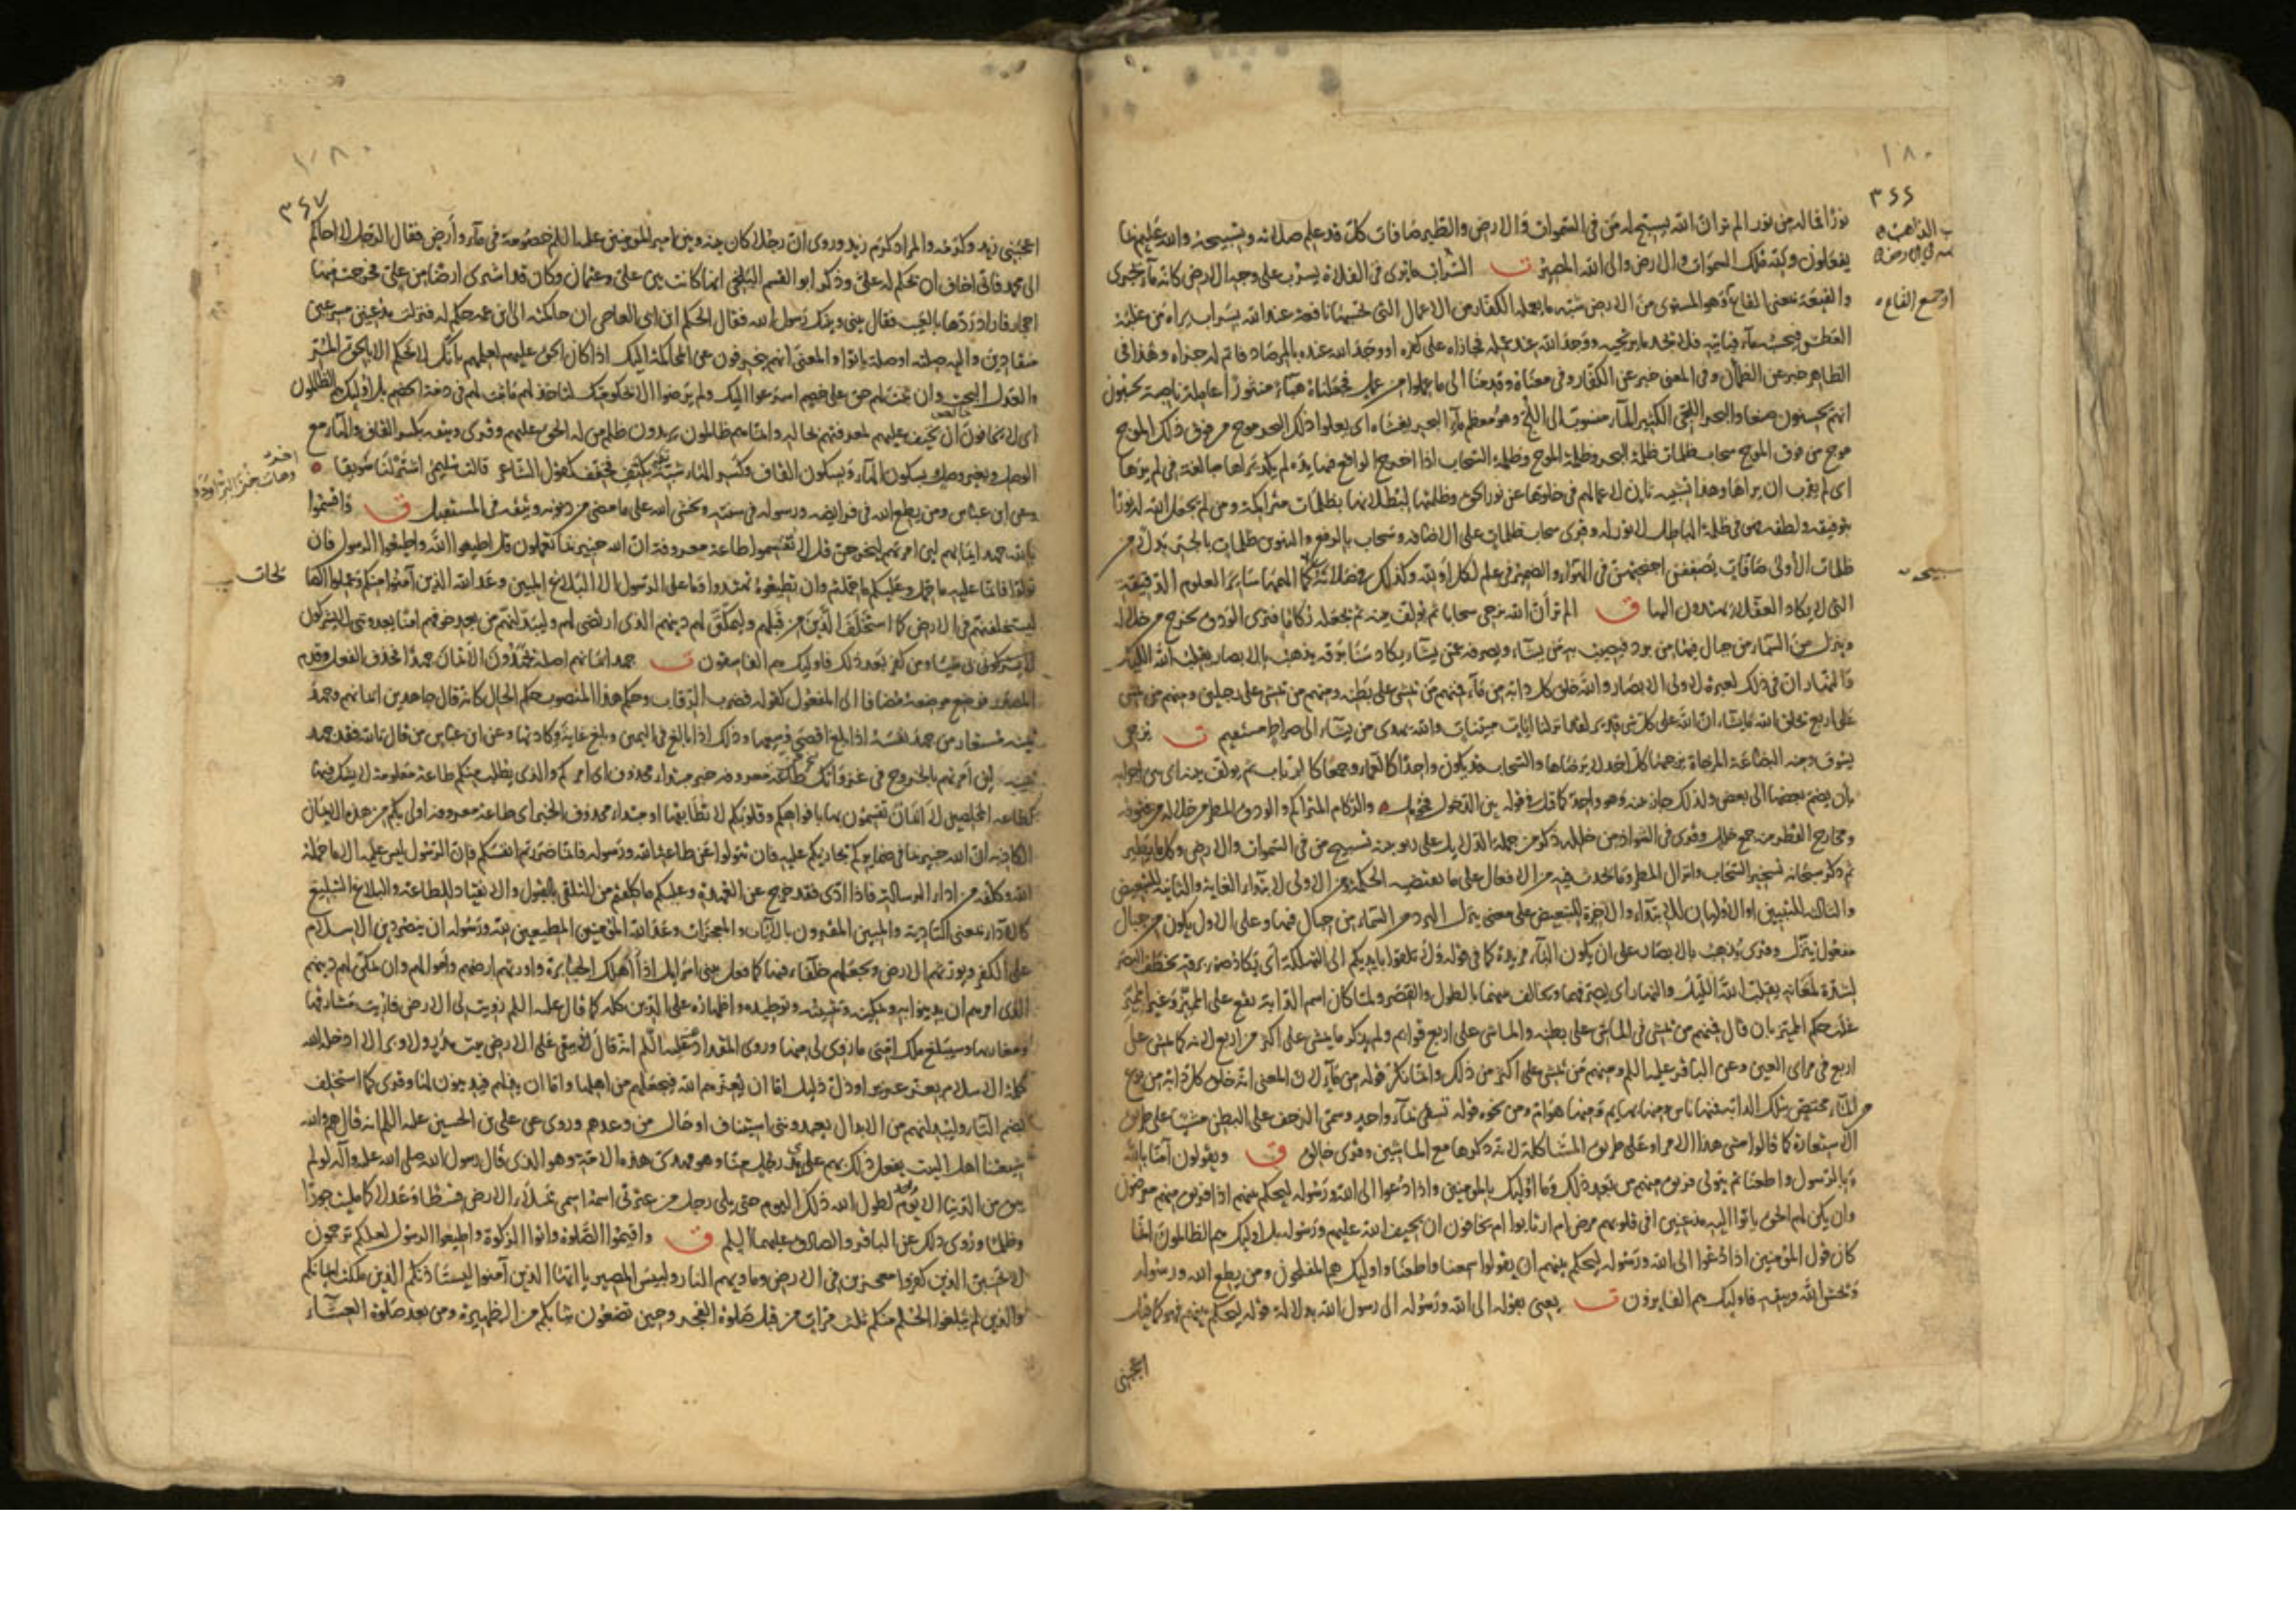 ١٨٠
٣٤٤
نورا فما له من نور الم تر ان الله يسبح له من في السموات والارض والطير صافات كل قد علم صلاته وتسبيحه والله عليم بما
يفعلون ولله ملك السموات والارض والى الله المصير ق السراب ما يرى في الفلاة يسرب على وجه الارض كانه ماء يجري
والقيعة بمعنى القاع وهو المستوى من الارض شبه ما يعمله الكفار من الاعمال التي يحسبها نافعة عند الله بسراب يراه من غلبه
العطش فيحسبه ماء فياتيه فلا يجد ما يرتجيه ووجد الله عند عمله فجازاه على كفره او وجد الله عنده بالمرصاد فاتم له جزاه وهذا في
الظاهر خبر عن الظمان وفي المعنى خبر عن الكفار وفي معناه وقدمنا الى ما عملوا من عمل فجعلناه هباء منثورا عاملة ناصبة يحسبون
انهم يحسنون صنعا والبحر اللجي الكثير الماء منسوب الى اللج وهو معظم ماء البحر يغشاه اي يعلوا ذلك البحر موج من فوق ذلك الموج
موج من فوق الموج سحاب ظلمات ظلمة البحر وظلمة الموج وظلمة السحاب اذا اخرج الواقع فيها يده لم يكد يراها مبالغة في لم يرها
اي لم يقرب ان يراها وهذا تشبيه ثان لاعمالهم في خلوها عن نور الحق وظلمتها لبطلانها بظلمات متراكمة ومن لم يجعل الله له نورا
بتوفيقه ولطفه فهو في ظلمة الباطل لا نور له وقرى سحاب ظلمات على الاضافة وسحاب بالرفع والتنوين ظلمات بالجر بدلا من
ظلمات الاولى صافات يصففن اجنحتهن في الهواء والضمير في علم لكل او لله وكذلك في صلاته كما الهمها سائر العلوم الدقيقة
التي لا يكاد العقلاء يهتدون اليها ق الم تر ان الله يزجي سحابا ثم يولف بينه ثم يجعله ركاما فترى الودق يخرج من خلاله
وينزل من السماء من جبال فيها من برد فيصيب به من يشاء ويصرفه عن من يشاء يكاد سنا برقه يذهب بالابصار يقلب الله الليل
والنهار ان في ذلك لعبرة لاولى الابصار والله خلق كل دابة من ماء فمنهم من يمشي على بطنه ومنهم من يمشي على رجلين ومنهم من يمشي
على اربع يخلق الله ما يشاء ان الله على كل شي قدير لقد انزلنا ايات مبينات والله يهدي من يشاء الى صراط مستقيم ق يزجي
يسوق ومنه البضاعة المزجاة يزجيها كل احد لا يرضاها والسحاب قد يكون واحدا كالعماء وجمعا كالرباب ثم يولف بينه اي بين اجزايه
بان يضم بعضها الى بعض ولذلك جاز بينه وهو واحد كما قيل في قوله بين الدخول فحومل والركام المتراكم والودق المطر من خلاله من فتوقه
ومخارج القطر منه جمع خلل وقرى في الشواذ من خلله ذكر من جملة الدلايل على ربوبيته تسبيح من في السموات والارض وكل ما يطير
ثم ذكر سبحانه تسخير السحاب وانزال المطر وما يحدث فيه من الافعال على ما تقتضيه الحكمة ومن الاولى لابتداء الغاية والثانية للتبعيض
والثالثة للتبيين او الاوليان للابتداء والاخرة للتبعيض على معنى ينزل البرد من السماء من جبال فيها وعلى الاول يكون من جبال
مفعول ينزل وقرى يذهب بالابصار على ان يكون الباء مزيدة كما في قوله ولا تلقوا بايديكم الى التهلكة اي يكاد ضوء برقه يخطف البصر
لشدة لمعانه يقلب الله الليل والنهار اي يصرفهما ويخالف بينهما بالطول والقصر ولما كان اسم الدابة يقع على المميز وغير المميز
غلب حكم المميز بان قال فمنهم من يمشي في الماشي على بطنه والماشي على اربع قوايم ولم يذكر ما يمشي على اكثر من اربع لانه كما يمشي على
اربع في مراى العين وعن الباقر عليه السلم ومنهم من يمشي على اكثر من ذلك وانما نكر قوله من ماء لان المعنى انه خلق كل دابة من نوع
من الماء مختص بتلك الدابة فمنها ناس ومنها بهايم ومنها هوام ومن نحوه قوله تسقى بماء واحد وسمى الزحف على البطن مشيا على طريق
الاستعارة كما قالوا مشى هذا الامر او على طريق المشاكلة لانه ذكرها مع الماشين وقرى خالق ق ويقولون آمنا بالله
وبالرسول واطعنا ثم يتولى فريق منهم من بعد ذلك وما اوليك بالمومنين واذا دعوا الى الله ورسوله ليحكم بينهم اذا فريق منهم معرضون
وان يكن لهم الحق ياتوا اليه مذعنين افي قلوبهم مرض ام ارتابوا ام يخافون ان يحيف الله عليهم ورسوله بل اوليك هم الظالمون انما
كان قول المومنين اذا دعوا الى الله ورسوله ليحكم بينهم ان يقولوا سمعنا واطعنا واوليك هم المفلحون ومن يطع الله ورسوله
ويخش الله ويتقه فاوليك هم الفايزون ق يعني بقوله الى الله ورسوله الى رسول الله بدلالة قوله ليحكم بينهم فهو كما قيل
اعجبني
١٨٠
٣٤٧
اعجبني زيد وكرمه والمراد كرم زيد وروى ان رجلا كان بينه وبين امير المومنين عليه السلم خصومة في ماء وارض فقال الرجل لا احاكم
الى محمد فاني اخاف ان يحكم له علي وذكر ابو القسم البلخي انها كانت بين علي وعثمان وكان قد اشترى ارضا من علي فخرجت فيها
احجار فاراد ردها بالعيب فقال بيني وبينك رسول الله فقال الحكم ابن ابي العاص ان حاكمته الى ابن عمه حكم له فنزلت مذعنين مسرعين
منقادين واليه صلته او صلة ياتوا والمعنى انهم ينحرفون عن المحاكمة اليك اذا كان الحق عليهم لعلمهم بانك لا تحكم الا بالحق المر
والعدل البحت وان ثبت لهم حق على خصم اسرعوا اليك ولم يرضوا الا بحكومتك لتاخذ لهم ما ثبت لهم في ذمة الخصم بل اوليك هم الظالمون
اي لا يخافون ان يحيف عليهم لمعرفتهم بحاله وانما هم ظالمون يريدون ظلم من له الحق عليهم وقرى ويتقه بكسر القاف والهاء مع
الوصل وبغير وصل وبسكون الهاء وبسكون القاف وكسر الهاء شبه تقه بكتف فخفف كقول الشاعر قالت سليمى اشتر لنا سويقا
وعن ابن عباس ومن يطع الله في فرايضه ورسوله في سننه ويخش الله على ما مضى من ذنوبه ويتقه في المستقبل ق واقسموا
بالله جهد ايمانهم لين امرتهم ليخرجن قل لا تقسموا طاعة معروفة ان الله خبير بما تعملون قل اطيعوا الله واطيعوا الرسول فان
تولوا فانما عليه ما حمل وعليكم ما حملتم وان تطيعوه تهتدوا وما على الرسول الا البلاغ المبين وعد الله الذين آمنوا منكم وعملوا الصالحات
ليستخلفنهم في الارض كما استخلف الذين من قبلهم وليمكنن لهم دينهم الذي ارتضى لهم وليبدلنهم من بعد خوفهم امنا يعبدونني لا يشركون
بي شيئا ومن كفر بعد ذلك فاوليك هم الفاسقون ق جهد ايمانهم اصله يجهدون الايمان جهدا فحذف الفعل وقدم
المصدر فوضع موضعه مضافا الى المفعول كقوله فضرب الرقاب وحكم هذا المنصوب حكم الحال كانه قال جاهدين ايمانهم وجهد
يمينه مستعار من جهد نفسه اذا بلغ اقصى وسعها وذلك اذا بالغ في اليمين وبلغ غاية وكادتها وعن ابن عباس من قال بالله فقد جهد
يمينه لين امرتهم بالخروج في غزواتك طاعة معروفة خبر مبتداء محذوف اي امركم والذي يطلب منكم طاعة معلومة لا يشك فيها
كطاعة المخلصين لا ايمان تقسمون بها بافواهكم وقلوبكم لا تطابقها او مبتداء محذوف الخبر اي طاعة معروفة اولى بكم من هذه الايمان
الكاذبة ان الله خبير بما في ضمايركم يجازيكم عليه فان تتولوا عن طاعة الله ورسوله فانما ضررتم انفسكم فان الرسول ليس عليه الا ما حمله
الله وكلفه من اداء الرسالة فاذا ادى فقد خرج عن العهدة وعليكم ما كلفتم من التلقي بالقبول والانقياد للطاعة والبلاغ التبليغ
كالاداء بمعنى التادية والمبين المقرون بالآيات والمعجزات وعد الله المومنين المطيعين لله ورسوله ان ينصر دين الاسلام
على الكفر ويورثهم الارض ويجعلهم خلفاء فيها كما فعل ببني اسرائيل اذ اهلك الجبابرة واورثهم ارضهم واموالهم وان يمكن لهم دينهم
الذي امرهم ان يدينوا به وتمكينه وتثبيته وتوطيده واظهاره على الدين كله كما قال عليه السلم زويت لي الارض فاريت مشارقها
ومغاربها وسيبلغ ملك امتي ما زوى لي منها وروى المقداد عنه عليه السلم انه قال لا يبقى على الارض بيت مدر ولا وبر الا ادخله الله
كلمة الاسلام بعز عزيز او ذل ذليل اما ان يعزهم الله فيجعلهم من اهلها واما ان يذلهم فيدينون لها وقرى كما استخلف
بضم التاء وليبدلنهم من الابدال يعبدونني استيناف او حال من وعدهم وروى عن علي بن الحسين عليه السلم انه قال هم والله
شيعتنا اهل البيت يفعل ذلك بهم على يدي رجل منا وهو مهدي هذه الامة وهو الذي قال رسول الله صلى الله عليه وآله لو لم
يبق من الدنيا الا يوم واحد لطول الله ذلك اليوم حتى يلي رجل من عترتي اسمه اسمي يملاء الارض قسطا وعدلا كما ملئت جورا
وظلما وروى ذلك عن الباقر والصادق عليهما السلم ق واقيموا الصلوة وآتوا الزكوة واطيعوا الرسول لعلكم ترحمون
لا تحسبن الذين كفروا معجزين في الارض وماويهم النار ولبيس المصير يا ايها الذين آمنوا ليستاذنكم الذين ملكت ايمانكم
والذين لم يبلغوا الحلم منكم ثلث مرات من قبل صلوة الفجر وحين تضعون ثيابكم من الظهيرة ومن بعد صلوة العشاء